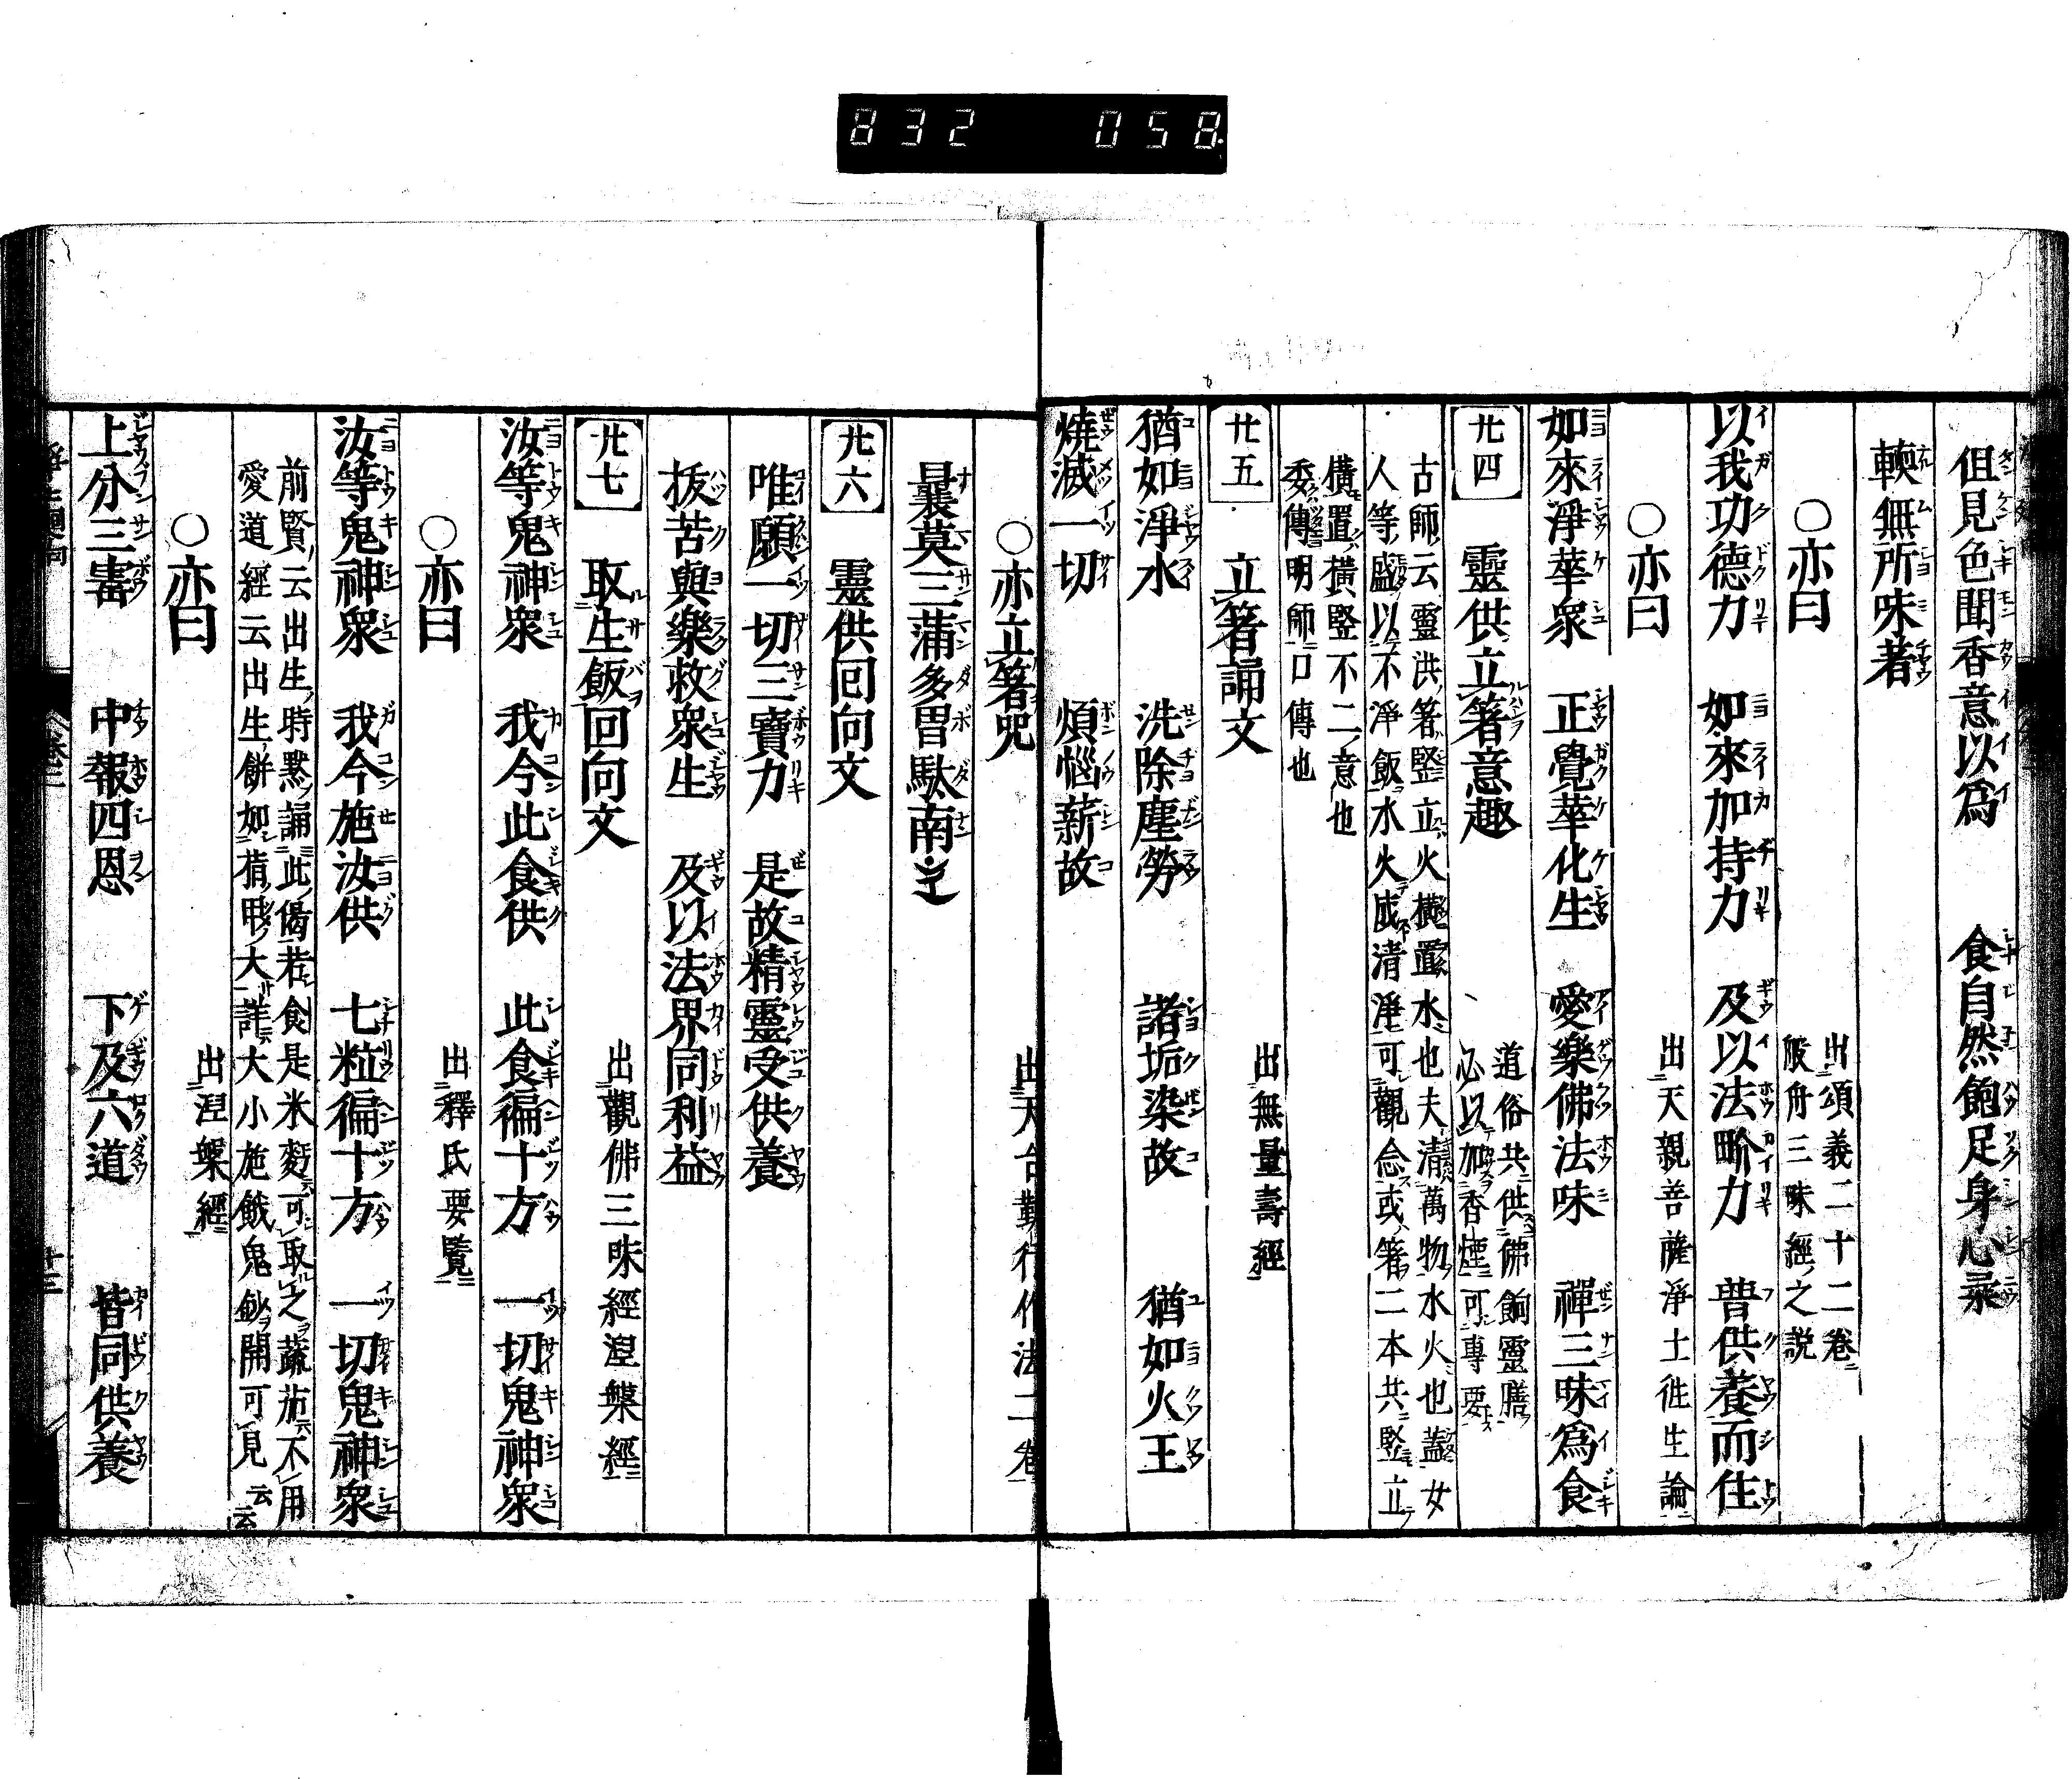 832 058
但見色聞香意以爲 食自然飽足身心柔
輭無所味著
○亦曰 出頌義二十二卷
般舟三昧經之説
以我功德力 如來加持力 及以法界力 普供養而住
○亦曰 出天親菩薩淨土徃生論
如來淨華衆 正覺華化生 愛樂佛法味 禪三昧爲食
廿四 靈供立箸意趣 道俗共供佛餉靈膳
必以加香煙可專要
古師云靈洪箸竪立火横置水也夫清萬物水火也蓋女
人等盛以不淨飯水火成清淨可觀念或箸二本共竪立
横置横竪不二意也
委傳明師口傳也
廿五 立箸誦文 出無量壽經
猶如淨水 洗除塵勞 諸垢染故 猶如火王
燒滅一切 煩惱薪故
○亦立箸咒 出天台勤行作法二卷
曩莫三蒲多冒駄南
廿六 靈供回向文
唯願一切三寶力 是故精靈受供養
拔苦與樂救衆生 及以法界同利益
廿七 取生飯回向文 出觀佛三昧經涅槃經
汝等鬼神衆 我今此食供 此食徧十方 一切鬼神衆
○亦曰 出釋氏要覽
汝等鬼神衆 我今施汝供 七粒徧十方 一切鬼神衆
前賢云出生時默誦此偈若食是米麪可取之蔬茄不用
愛道經云出生餅如指甲大詳大小施餓鬼鈔開可見云云
○亦曰 出涅槃經
上分三寶 中報四恩 下及六道 皆同供養
卷二 十三